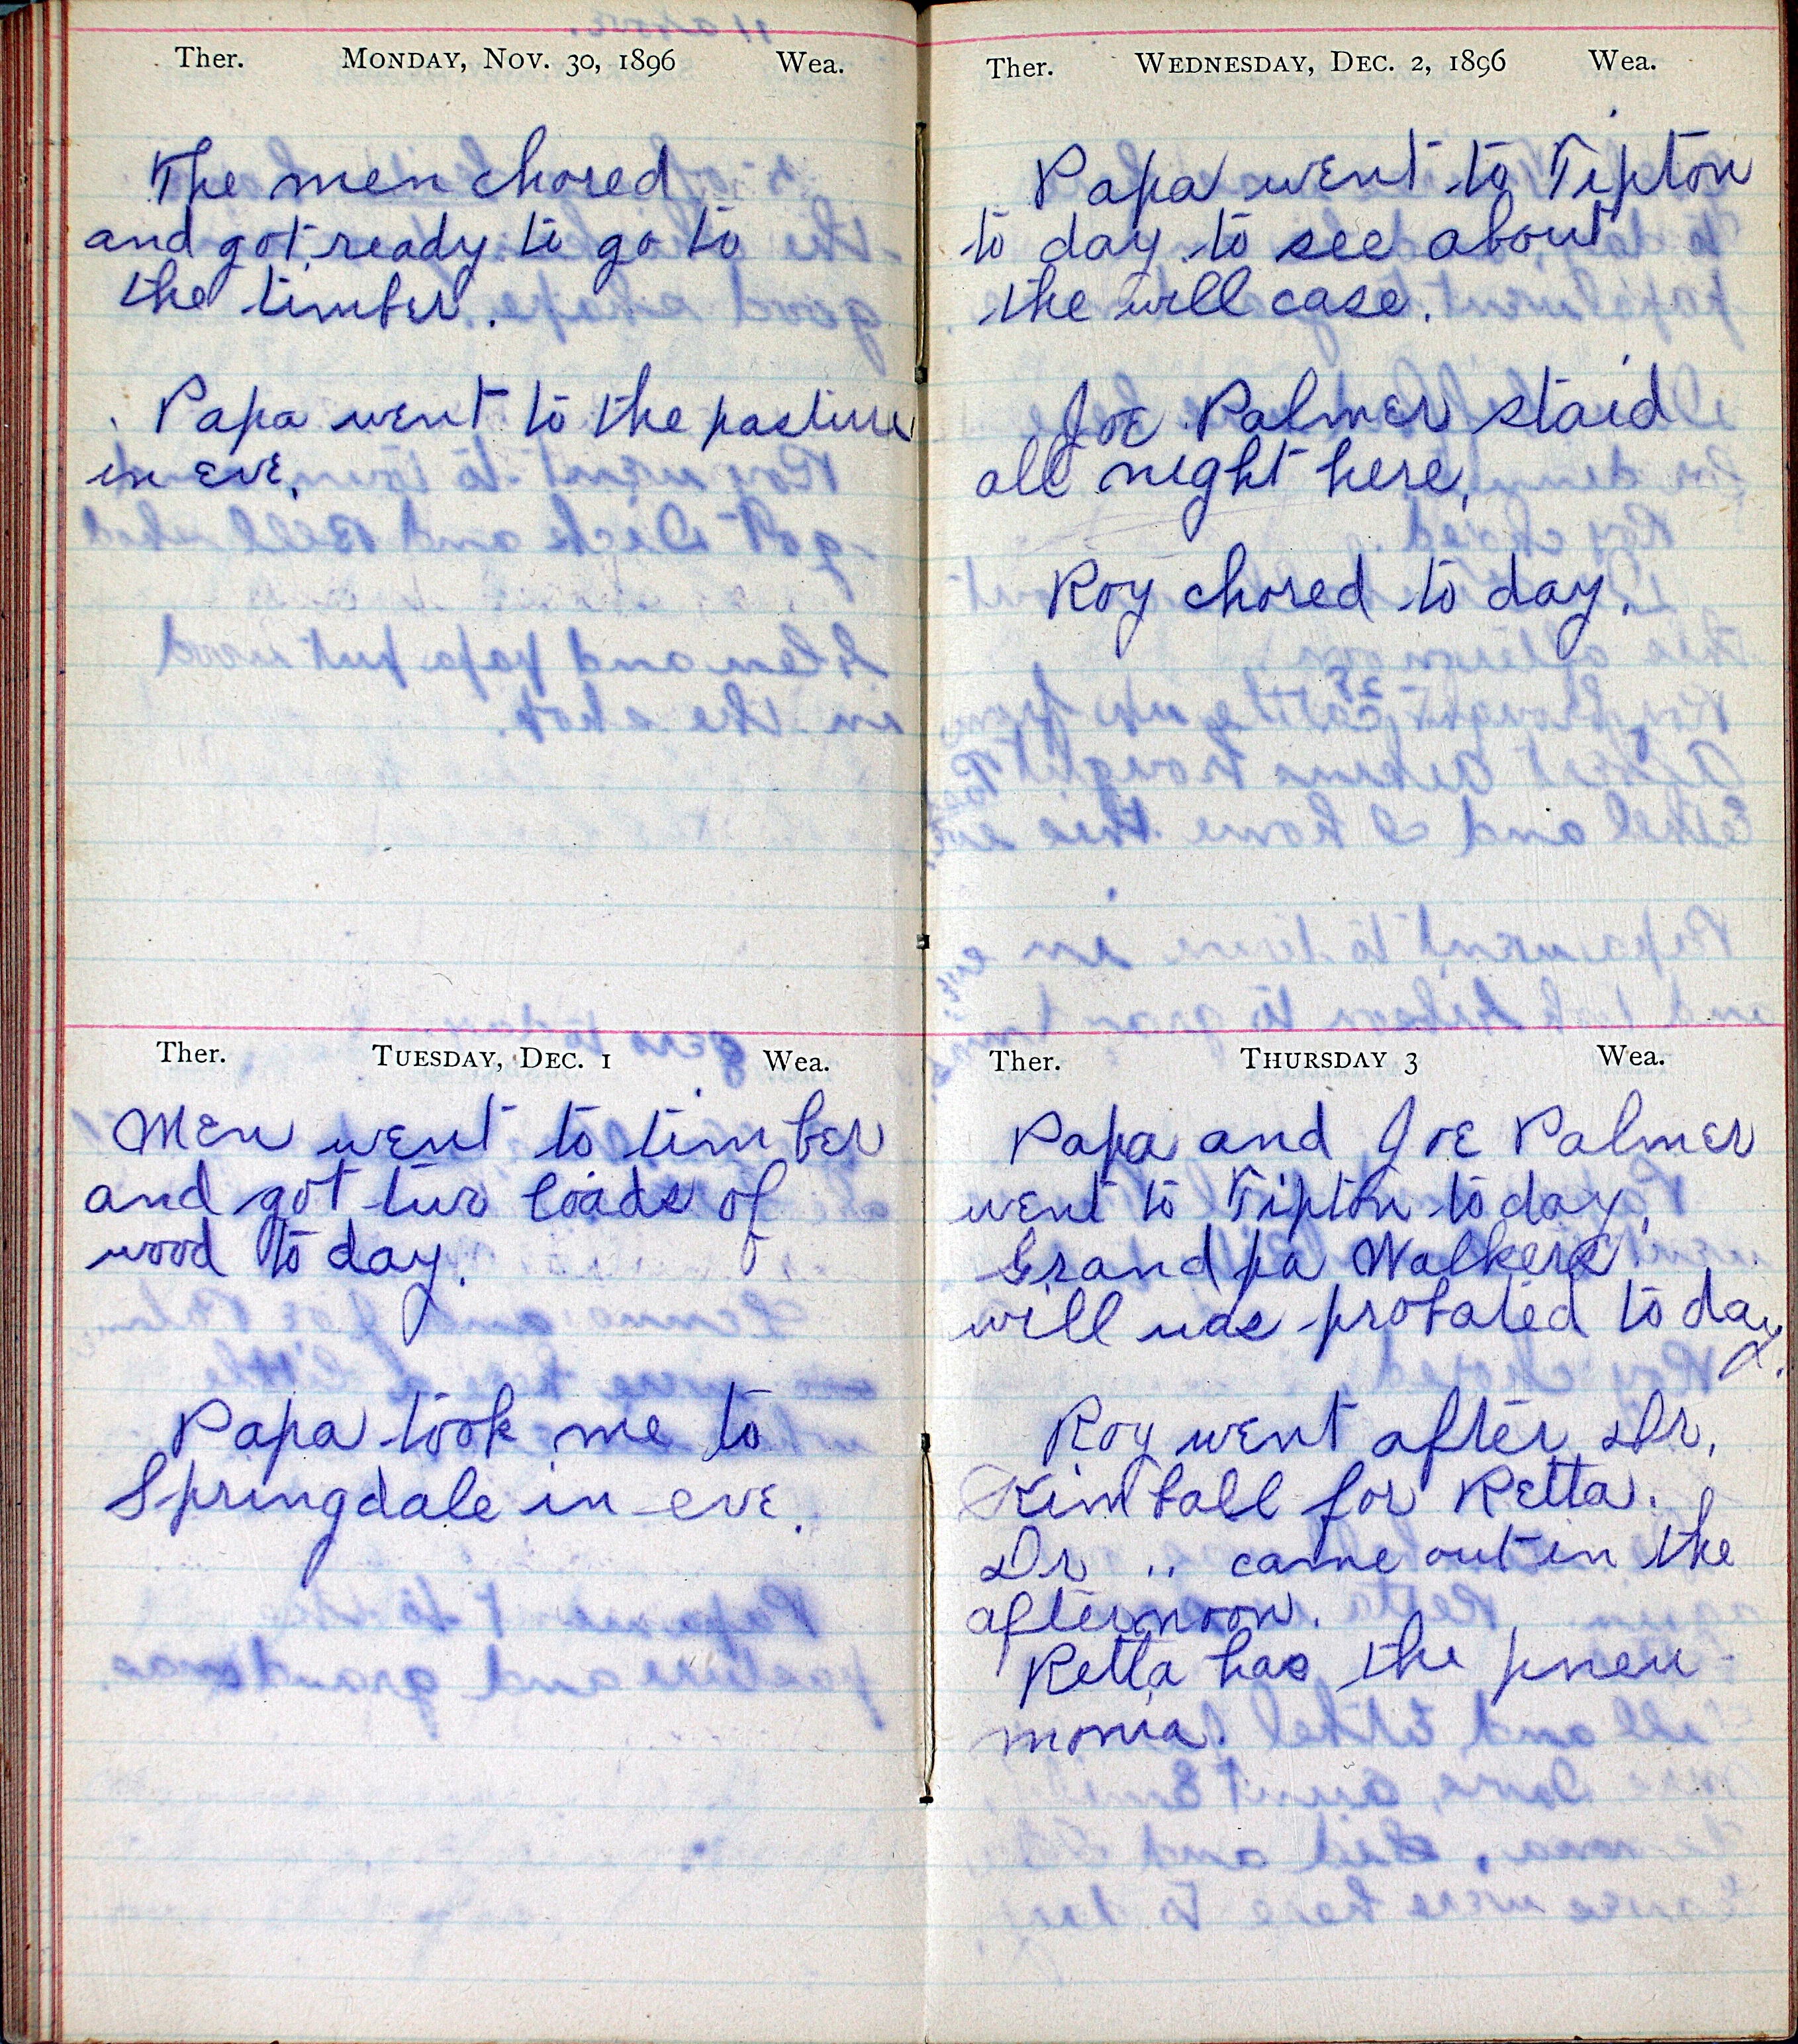 Ther. Monday, Nov. 30, 1896 Wea.
The men chored
and got ready to go to
the timber.
Papa went to the pasture
in eve.
Ther. Tuesday, Dec. 1 Wea.
Men went to timber
and got two loads of
wood to day.
Papa took me to
Springdale in eve.
Ther. Wednesday, Dec. 2, 1896 Wea.
Papa went to Tipton
to day to see about
the will case.
Joe Palmer staid
all night here.
Roy chored to day.
Ther. Thursday 3 Wea.
Papa and Joe Palmer
went to Tipton to day.
Grandpa Walkers
will was probated to day.
Roy went after Dr.
Kimball for Retta.
Dr " came out in the
afternoon.
Retta has the pneu-
monia.